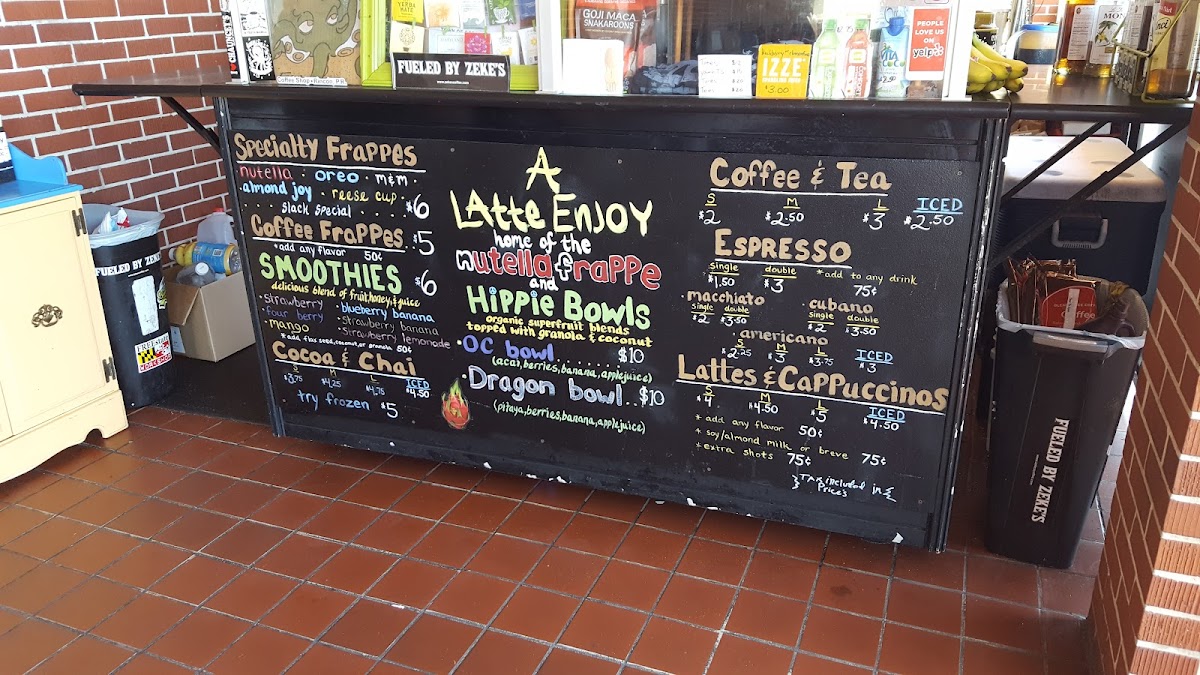 Coffee Shop • Rincon, PR
FUELED BY ZEKE'S
YERBA MATE
GOJI MACA
SNAKAROONS
IZZE
$3.00
VITA COCO
PEOPLE
LOVE US
ON
yelp
Specialty Frappes
nutella • oreo • m&m •
almond joy • reese cup •
slack special $6
Coffee Frappes $5
*add any flavor 50¢
SMOOTHIES $6
delicious blend of fruit, honey, & juice
• strawberry • blueberry banana
• four berry • strawberry banana
• mango • strawberry lemonade
*add, flax seed, coconut, or granola 50¢
Cocoa & Chai
S M L ICED
$3.75 $4.25 $4.75 $4.50
• try frozen $5
A
LAtte ENJOY
home of the
nutella frappe
and
Hippie Bowls
organic superfruit blends
topped with granola & coconut
• OC bowl......... $10
(acai, berries, banana, applejuice)
• Dragon bowl.. $10
(pitaya, berries, banana, applejuice)
Coffee & Tea
S M L ICED
$2 $2.50 $3 $2.50
ESPRESSO
single double *add to any drink
$1.50 $3 75¢
• macchiato • cubano
single double single double
$2 $3.50 $2 $3.50
• americano
S M L ICED
$2.25 $3 $3.75 $3
Lattes & Cappuccinos
S M L ICED
$4 $4.50 $5 $4.50
* add any flavor 50¢
* soy/almond milk or breve 75¢
* extra shots 75¢
{TAX included in}
Price's
FUELED BY ZEKE'S
FUELED BY ZEKE'S
Coffee